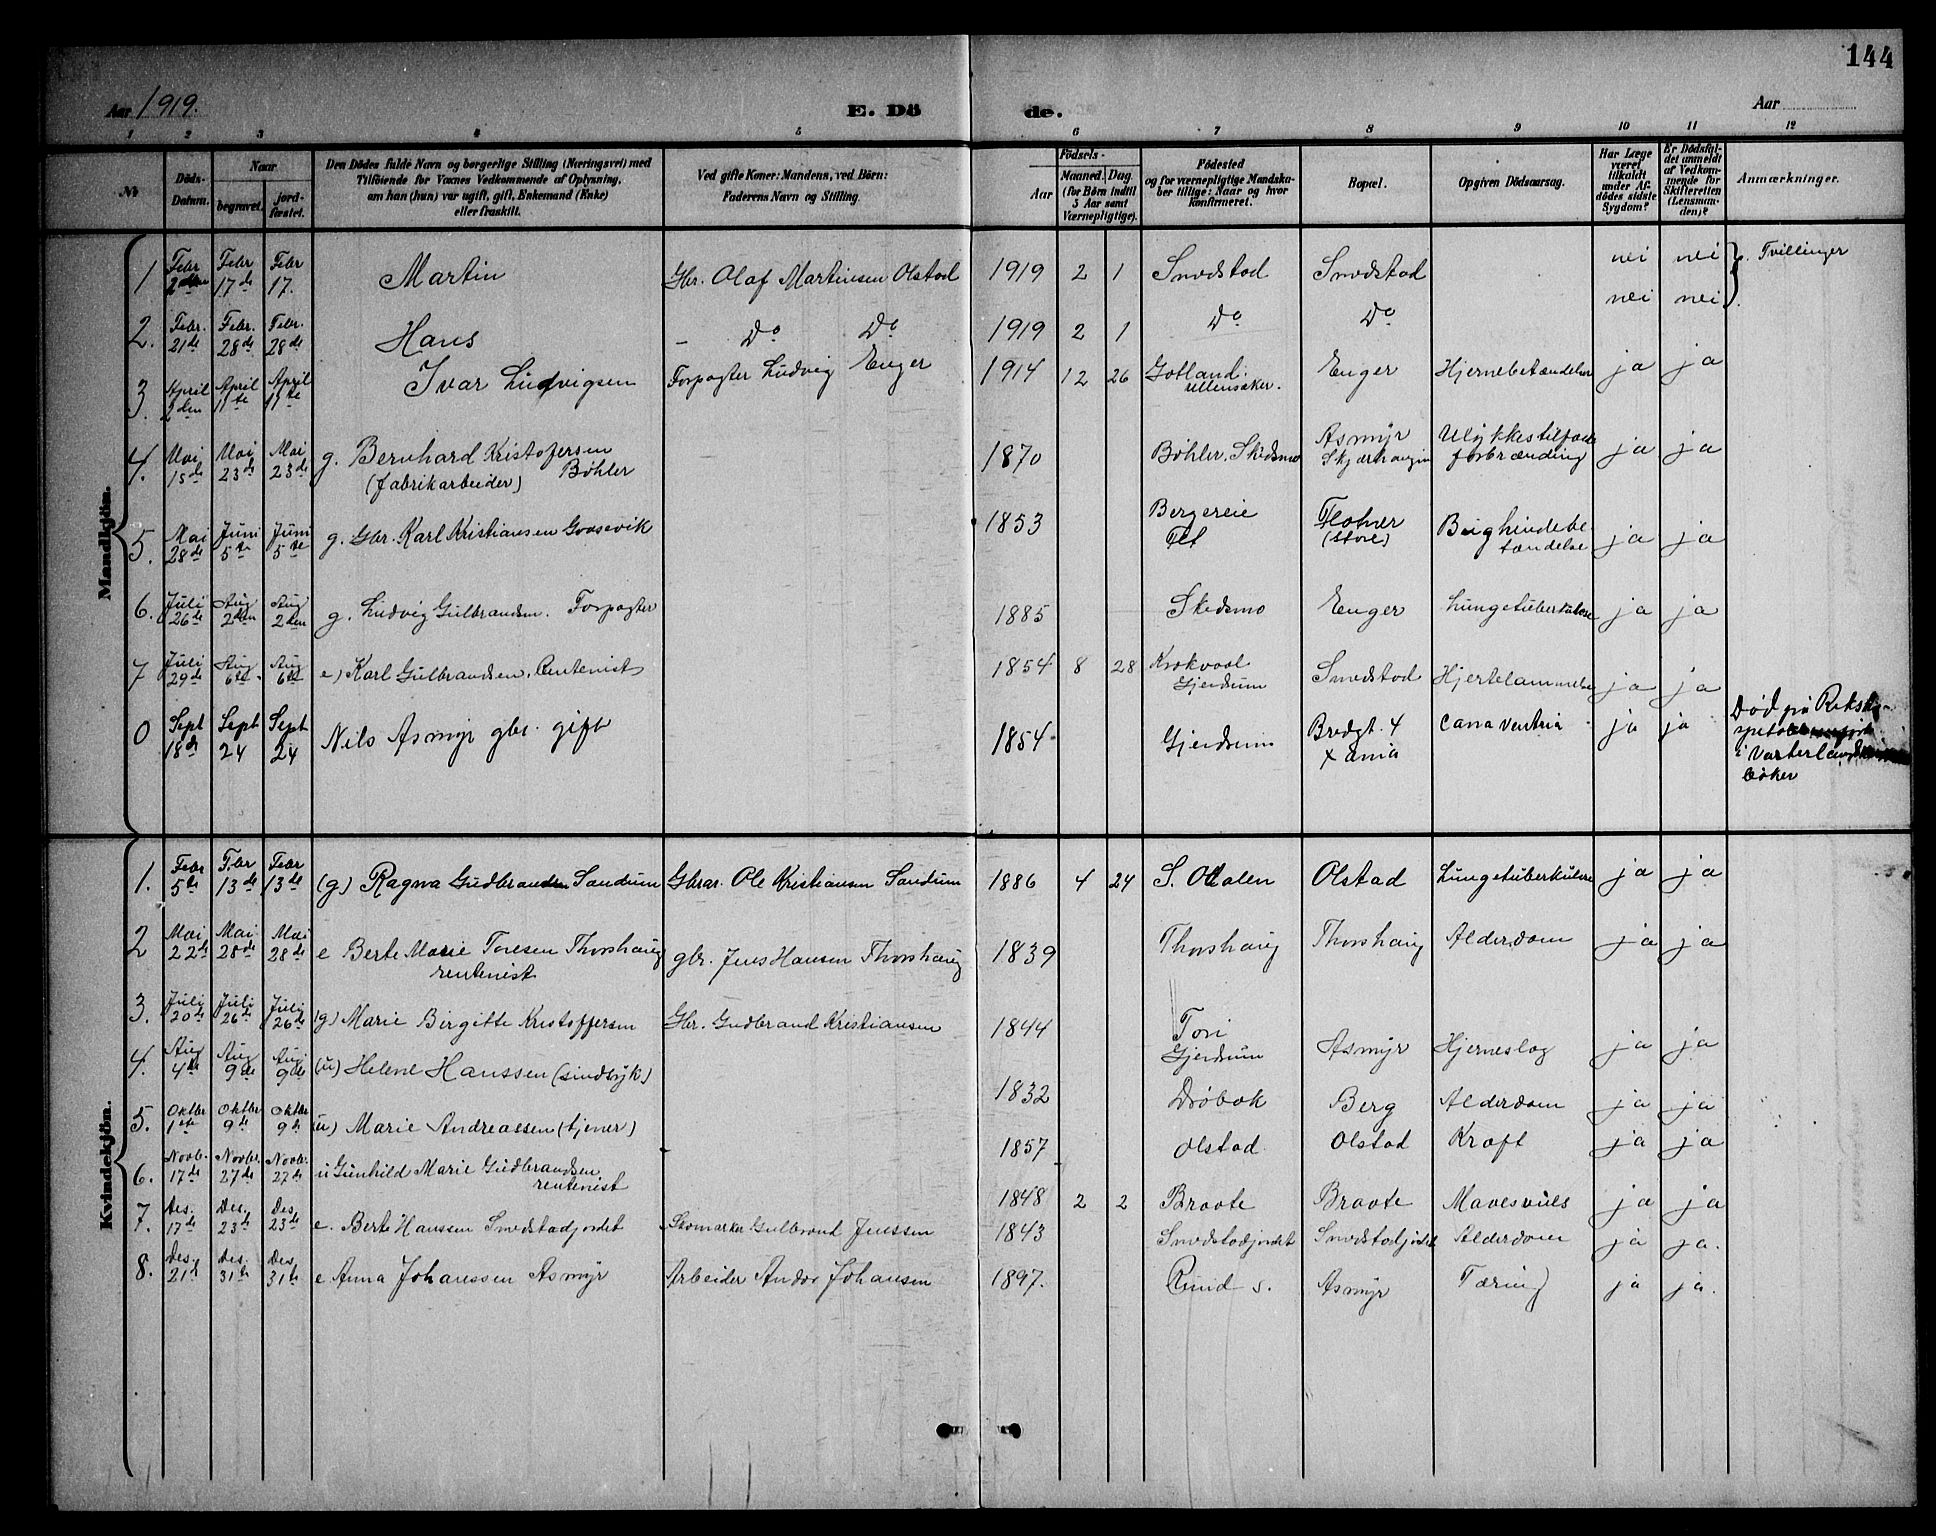 144
Aar 1919.
E. Döde.
Aar
1 2 3 4 5 6 7 8 9 10 11 12
№
Döds-Datum.
Naar
begravet.
jordfæstet.
Den Dödes fulde Navn og borgerlige Stilling (Næringsvei) med
Tilföiende for Voxnes Vedkommende af Oplysning,
om han (hun) var ugift, gift, Enkemand (Enke)
eller fraskilt.
Ved gifte Koner: Mandens, ved Börn:
Faderens Navn og Stilling.
Födsels-
Aar
Maaned. Dag.
(for Börn indtil
5 Aar samt
Værnepligtige).
Födested
og for værnepligtige Mandska-
ber tillige: Naar og hvor
konfirmeret.
Bopæl.
Opgiven Dödsaarsag.
Har Læge
været
tilkaldt
under Af-
dödes sidste
Sygdom?
Er Dödsfal-
det anmeldt
af Vedkom-
mende for
Skifteretten
(Lensman-
den)?
Anmærkninger.
Mandkjön.
1 Febr 2den Febr 17de Febr 17. Martin Gbr. Olaf Martinsen Olstad 1919 2 1 Smedstad Smedstad nei nei Tvillinger
2. Febr. 21de Febr. 28de Febr. 28de Hans – Do Do 1919 2 1 Do Do nei nei
3. April 2den April 11te April 11te Ivar Ludvigsen Forpagter Ludvig Enger 1914 12 26 Gotland Ullensaker. Enger Hjernebetændelse ja ja
4. Mai 15de Mai 23de Mai 23de g. Bernhard Kristofersen Bøhler (fabrikarbeider) 1870 Bøhler, Skedsmo Asmyr Ulykkestilfælde forbrænding ja ja
5. Mai 28de Juni 5te Juni 5te g. Gbr. Karl Kristiansen 1853 Bergereie Flotner (store) Brighindebetændelse ja ja
6. Juli 26de Aug 2den Aug 2den g. Ludvig Gulbrandsen. Forpagter 1885 Skedsmo Enger Lungetuberkulose ja ja
7 Juli 29de Aug 6te Aug 6te e) Karl Gulbrandsen, Rentenist 1854 8 28 Gjerdrum Smedstad Hjertelammelse ja ja
0 Sept 18de Sept 24 Sept 24 Nils Asmyr gbr. gift 1854 Gjerdrum Bredgt. 4 Xania ja ja Død på
i
bøker
Kvindekjön.
1. Febr 5te Febr 13de Febr 13de (g) Ragna Gudbrandsen Sandum Gbrar. Ole Kristiansen Sandum 1886 4 24 S. Odalen Olstad Lungetuberkulose ja ja
2 Mai 22de Mai 28de Mai 28de e Berte Marie Toresen Thorshaug rentenist gbr. Jens Hansen Thorshaug 1839 Thorshaug Thorshaug Alderdom ja ja
3. Juli 20de Juli 26de Juli 26de (g) Marie Birgitte Kristoffersen Gbr. Gudbrand Kristiansen 1844 Tori Gjerdrum Asmyr Hjerneslag ja ja
4. Aug 4de Aug 9de Aug 9de (u) Helene Hanssen (sindsyk) 1832 Drøbak Berg Alderdom ja ja
5. Oktbr 1ste Oktbr 9de Oktbr 9de (u) Marie Andreassen (tjener) 1857 Olstad Olstad Kræft ja ja
6. Novbr. 17de Novbr. 27de Novbr. 27de u Gunhild Marie Gudbrandsen rentenist 1848 2 2 Braate Braate Mavesvuls ja ja
7. Des. 17de Des. 23de Des. 23de e. Berte Hanssen Smedstadjordet Skomarker Gulbrand Jenssen 1843 Smedstadjordet Smedstadjordet Alderdom ja ja.
8. Des. 21de Des. 31te Des. 31te e Anna Johanssen Asmyr Arbeider Johansen 1897. Rund s. Asmyr Tæring ja ja.